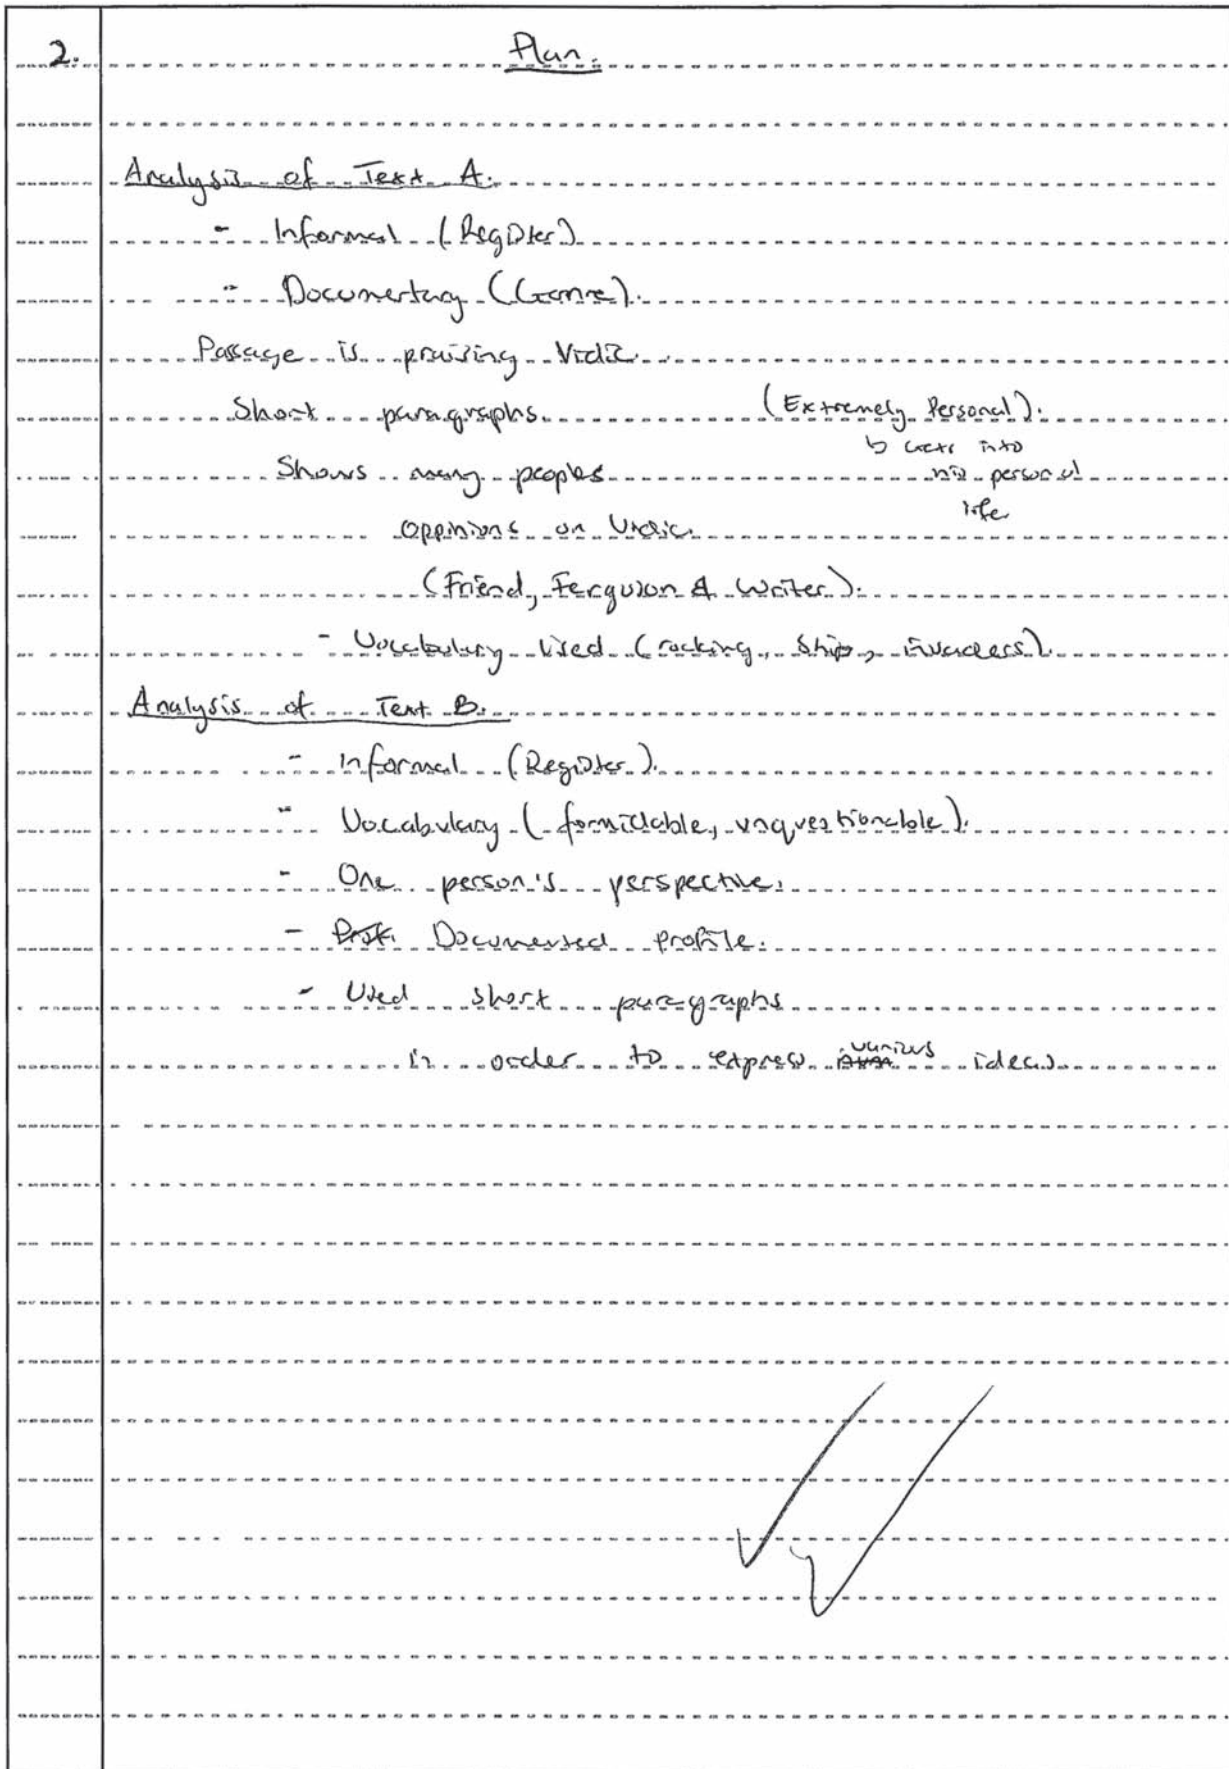 2. Plan.
Analysis of Text A.
- Informal (Register)
- Documentary (Genre).
Passage is praising Vidic.
Short paragraphs. (Extremely Personal).
↳ into
his personal
life
Shows many peoples
oppinions on Vidic.
(Friend, Ferguson & Writer).
- Vocabulary Used (rocking, ship, invaders).
Analysis of Text B.
- Informal (Register).
- Vocabulary (formidable, unquestionable).
- One person's perspective.
- Documented profile.
- Used short paragraphs
in order to express various ideas.